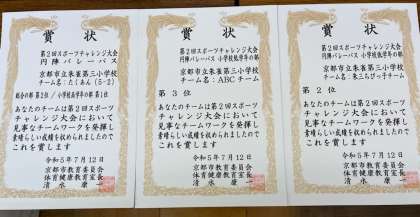 賞状
第2回スポーツチャレンジ大会
円陣バレーパス
京都市立朱雀第三小学校
チーム名:たくあん(5-2)
総合の部 第2位/小学校高学年の部 第1位
あなたのチームは第2回スポーツ
チャレンジ大会において
見事なチームワークを発揮し
素晴らしい成績を収められましたので
これを賞します
令和5年7月12日
京都市教育委員会
体育健康教育室長
清水康一
賞状
第2回スポーツチャレンジ大会
円陣バレーパス 小学校低学年の部
京都市立朱雀第三小学校
チーム名:ABCチーム
第3位
あなたのチームは第2回スポーツ
チャレンジ大会において
見事なチームワークを発揮し
素晴らしい成績を収められましたので
これを賞します
令和5年7月12日
京都市教育委員会
体育健康教育室長
清水康一
賞状
第2回スポーツチャレンジ大会
円陣バレーパス 小学校低学年の部
京都市立朱雀第三小学校
チーム名:朱三ちびっ子チーム
第2位
あなたのチームは第2回スポーツ
チャレンジ大会において
見事なチームワークを発揮し
素晴らしい成績を収められましたので
これを賞します
令和5年7月12日
京都市教育委員会
体育健康教育室長
清水康一